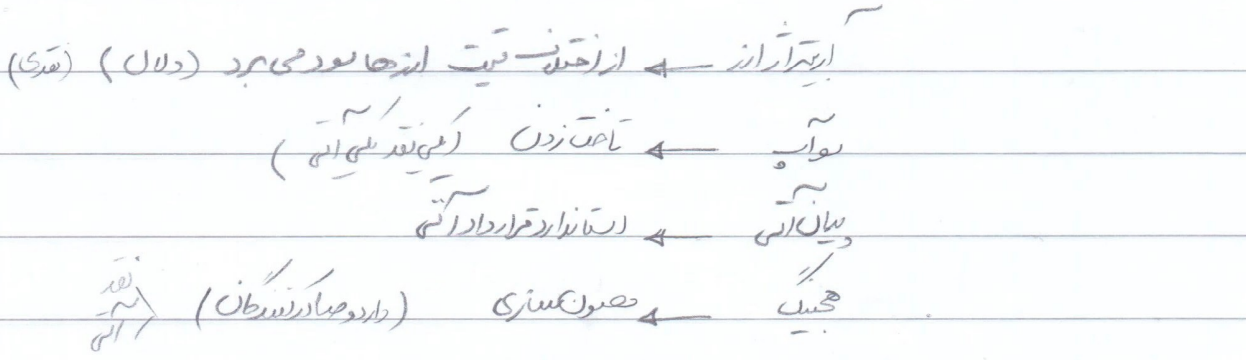 آربیتراژ ارز ← از اختلاف قیمت ارزها سود می برد (دلال) (نقدی)
سوآپ ← تاخت زدن (یکی نقد یکی آتی)
پیمان آتی ← استاندارد قرارداد آتی
هجینگ ← مصون سازی (وارد و صادرکنندگان) (نقد به آتی